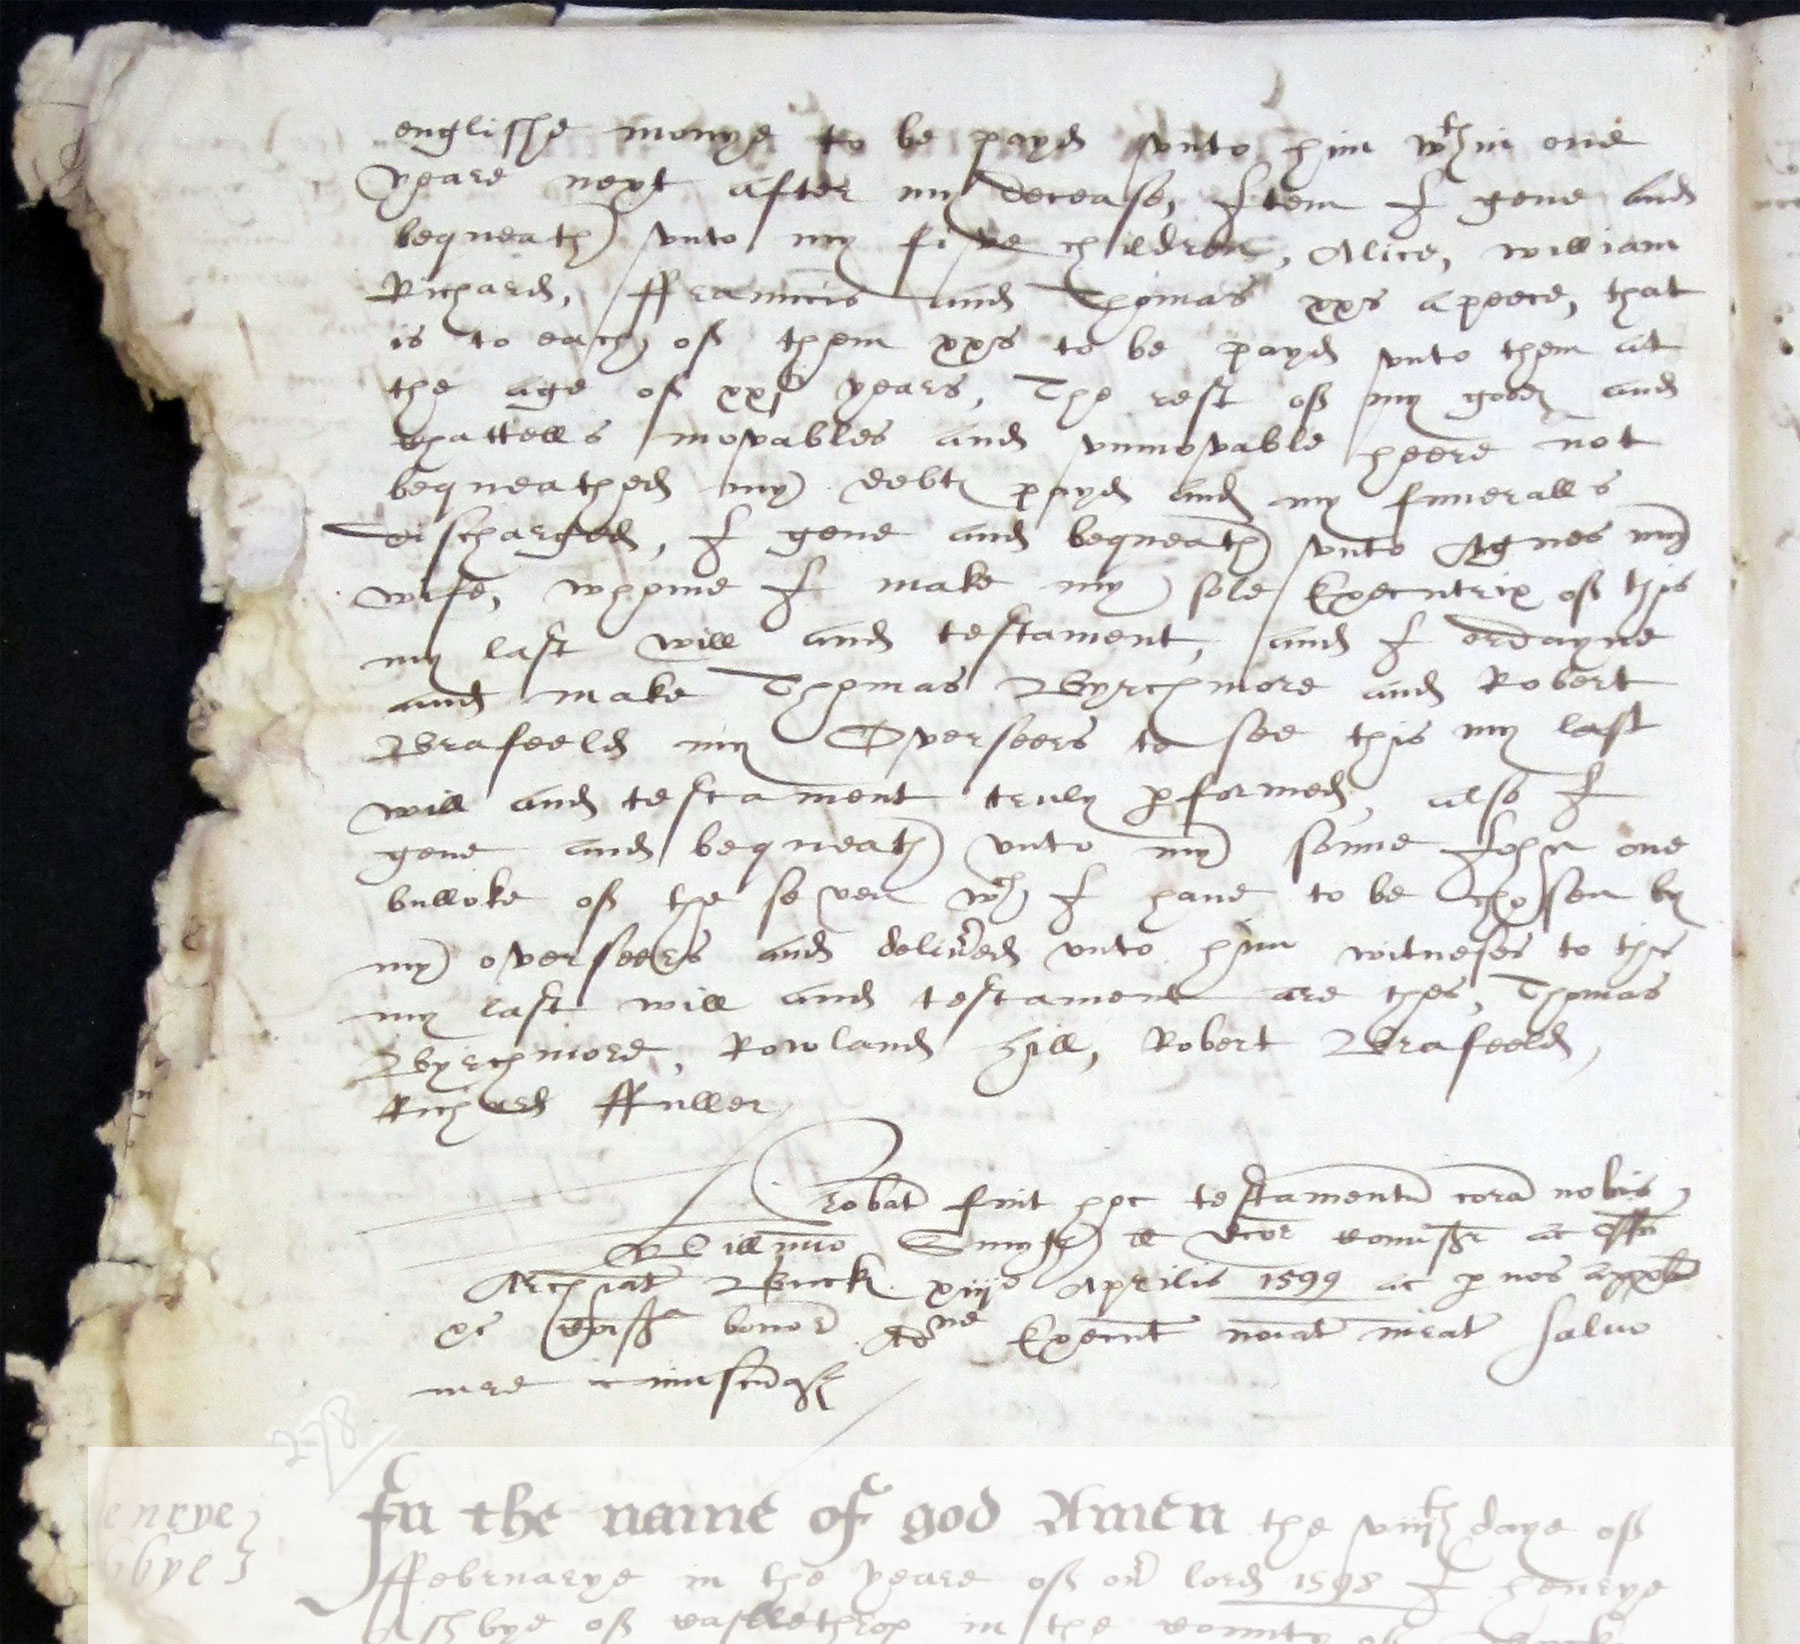 englisshe monye to be payd vnto him wth in one
yeare next after my decease, Item I geve and
bequeath vnto my five children, Alice, William
Richard, ffrauncis and Thomas xxs apeece, that
is to each of them xxs to be payd vnto them at
the age of xxj years, The rest of my goods and
chattells movables and vnmovable heere not
bequeathed my debts payd and my funeralls
discharged, I geve and bequeath vnto Agnes my
wife, whome I make my sole Executrix of this
my last will and testament, and I ordayne
and make Thomas Byrchmore and Robert
Brafeeld my Overseers to see this my last
will and testament truly pformed, also I
geve and bequeath vnto my sonne John one
bulloke of the seven wch I have to be chosen by
my overseers and delivred vnto him witneses to this
my last will and testament are thes, Thomas
Byrchmore, Rowland Hill, Robert Brafeeld,
Richard ffuller
Probat fuit hoc testamentu cora nobis
Willmo Smyth ac offi
Archiat Buck xiijo Aprilis 1599 ac p nos
bonor Execut iurat salvo
iure cuiuscuqz
278
enrye
bbye
In the name of god Amen the viijth daye of
ffebruarye in the yeare of or lord 1598 I Henrye
Ashbye of Castlethrop in the County of